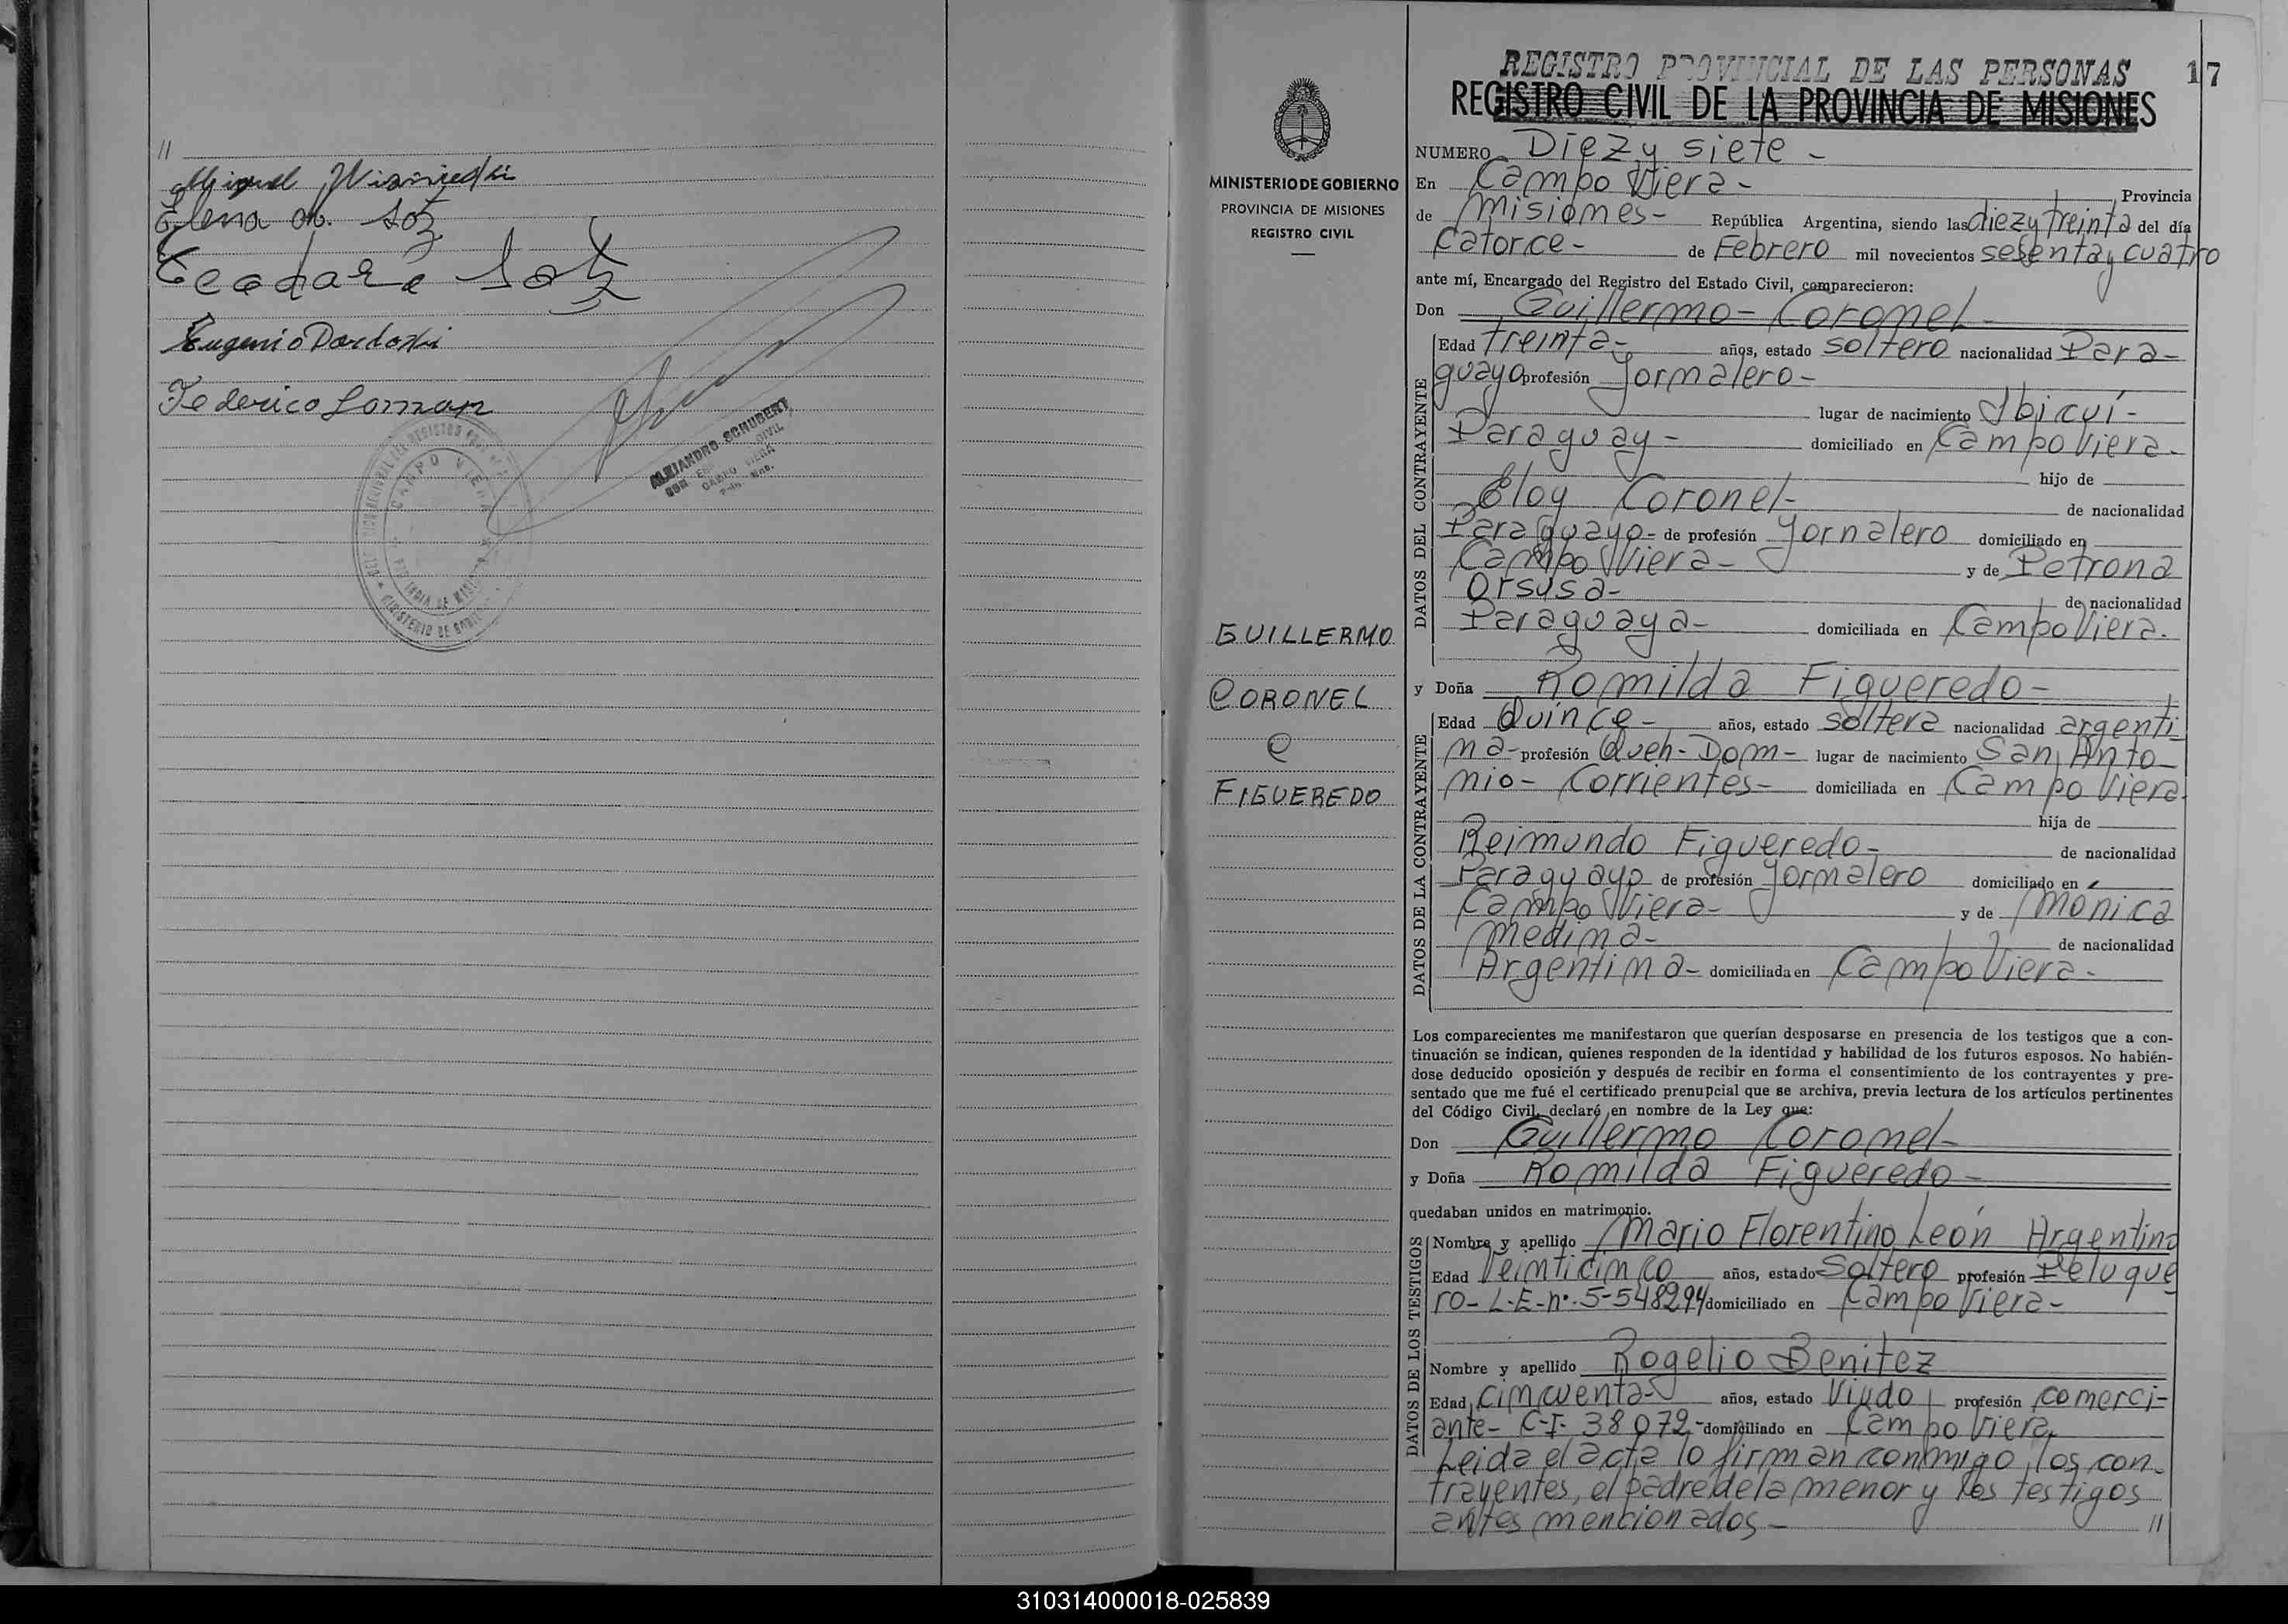 //
Miguel
Elena
Teodoro
Eugenio
Federico
ALEJANDRO SCHUBERT
CAMPO VIERA
MINISTERIO DE GOBIERNO
PROVINCIA DE MISIONES
REGISTRO CIVIL
GUILLERMO
CORONEL
e
FIGUEREDO
REGISTRO PROVINCIAL DE LAS PERSONAS 17
REGISTRO CIVIL DE LA PROVINCIA DE MISIONES
NUMERO Diez y siete -
En Campo Viera - Provincia
de Misiones - República Argentina, siendo las diez y treinta del día
Catorce - de Febrero mil novecientos sesenta y cuatro
ante mí, Encargado del Registro del Estado Civil, comparecieron:
Don Guillermo - Coronel -
DATOS DEL CONTRAYENTE
Edad treinta - años, estado soltero nacionalidad Para-
guayo profesión Jornalero -
lugar de nacimiento Ibicuí -
Paraguay - domiciliado en Campo Viera -
hijo de
Eloy Coronel - de nacionalidad
Paraguayo - de profesión Jornalero domiciliado en
Campo Viera - y de Petrona
Orsusa - de nacionalidad
Paraguaya - domiciliada en Campo Viera.
y Doña Romilda Figueredo -
DATOS DE LA CONTRAYENTE
Edad Quince - años, estado soltera nacionalidad argenti-
na - profesión Queh - Dom - lugar de nacimiento San Anto-
nio - Corrientes - domiciliada en Campo Viera.
hija de
Reimundo Figueredo - de nacionalidad
Paraguayo de profesión Jornalero domiciliado en
Campo Viera - y de Monica
Medina - de nacionalidad
Argentina - domiciliada en Campo Viera -
Los comparecientes me manifestaron que querían desposarse en presencia de los testigos que a con-
tinuación se indican, quienes responden de la identidad y habilidad de los futuros esposos. No habién-
dose deducido oposición y después de recibir en forma el consentimiento de los contrayentes y pre-
sentado que me fué el certificado prenupcial que se archiva, previa lectura de los artículos pertinentes
del Código Civil, declaré en nombre de la Ley que:
Don Guillermo Coronel -
y Doña Romilda Figueredo -
quedaban unidos en matrimonio.
DATOS DE LOS TESTIGOS
Nombre y apellido Mario Florentino León Argentino
Edad Veinticinco años, estado Soltero profesión Peluque-
ro - L.E - nº. 5-548294 domiciliado en Campo Viera -
Nombre y apellido Rogelio Benitez
Edad cincuenta - años, estado Viudo profesión comerci-
ante - C-I- 38072 - domiciliado en Campo Viera.
Leida el acta lo firman conmigo, los con-
trayentes, el padre de la menor y los testigos
antes mencionados - //
310314000018-025839